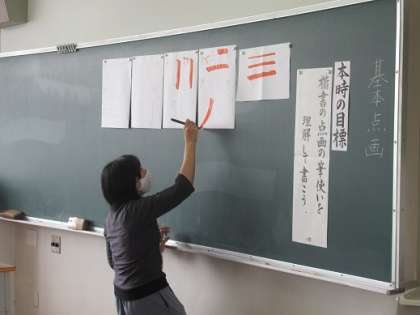 基本点画
本時の目標
楷書の点画の筆使いを
理解して書こう。
三
二